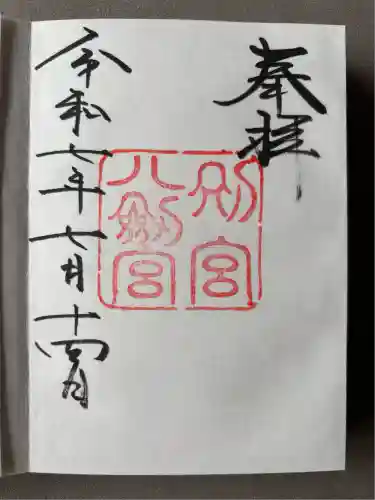 奉拝
別宮
八剣宮
令和七年七月十四日